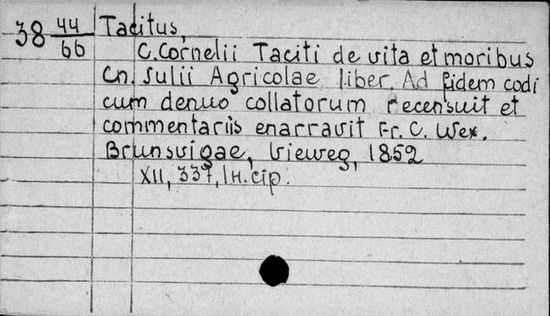 38 44/66 Tacitus,
C. Cornelii Taciti de vita et moribus
Cn. Julii Agricolae liber. Ad fidem codi
cum denuo collatorum recensuit et
commentariis enarravit Fr. C. Wex.
Brunsvigae, Vieweg, 1852
XII, 337, 1 н. стр.